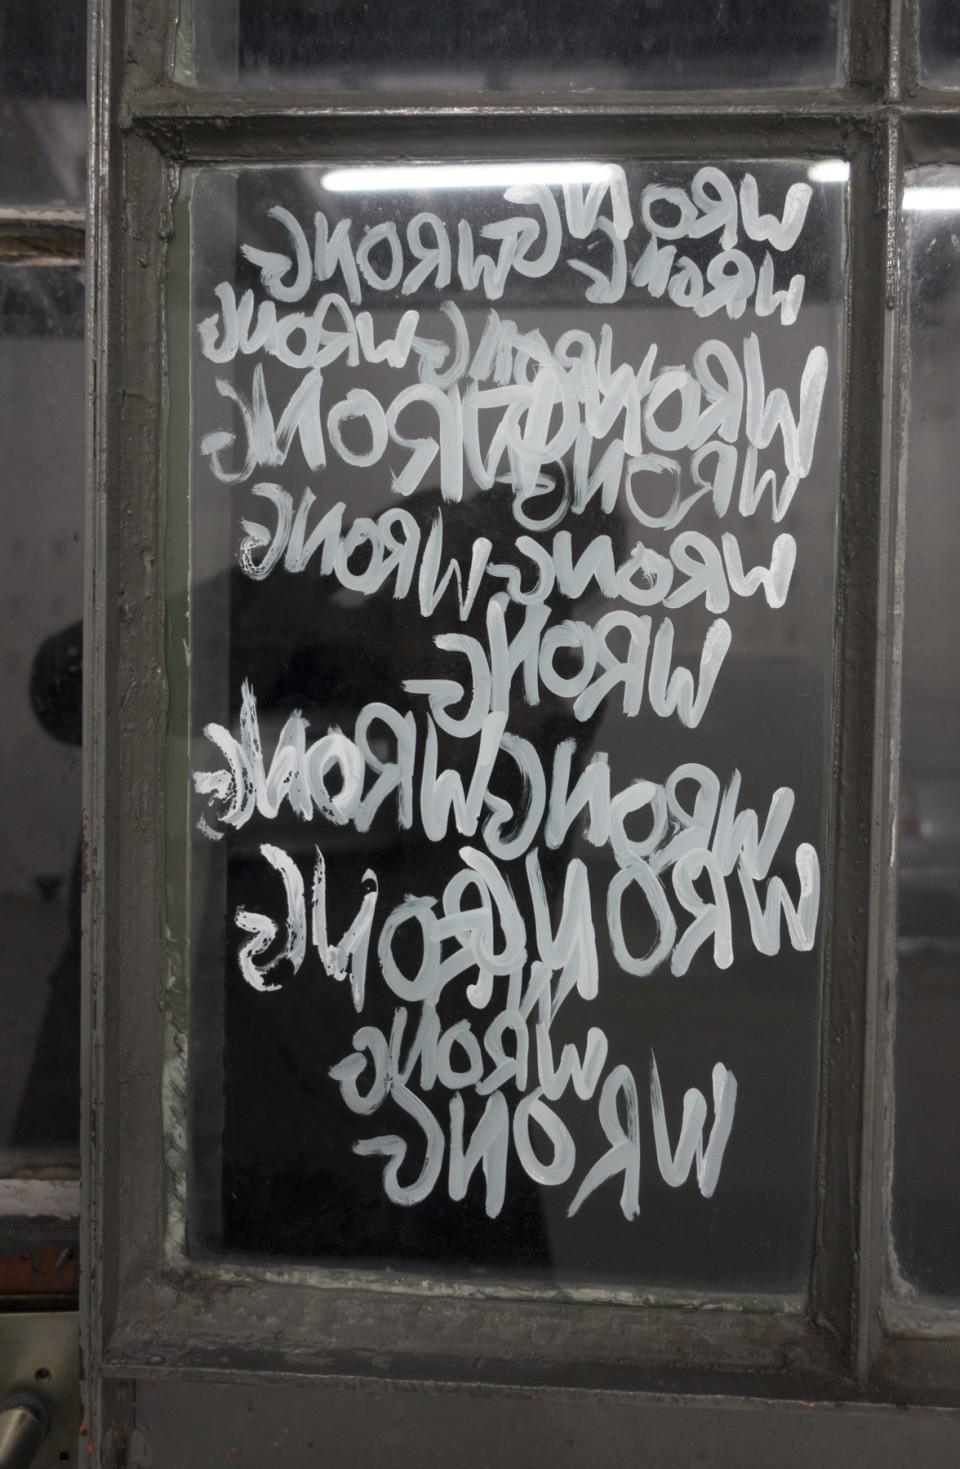 WRONG WRONG
WRONG
WRONG WRONG
WRONG WRONG
WRONG
WRONG WRONG
WRONG
WRONG WRONG
WRONG WRONG
WRONG
WRONG